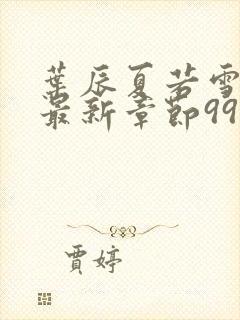 葉辰夏若雪
最新章節99
賈婷